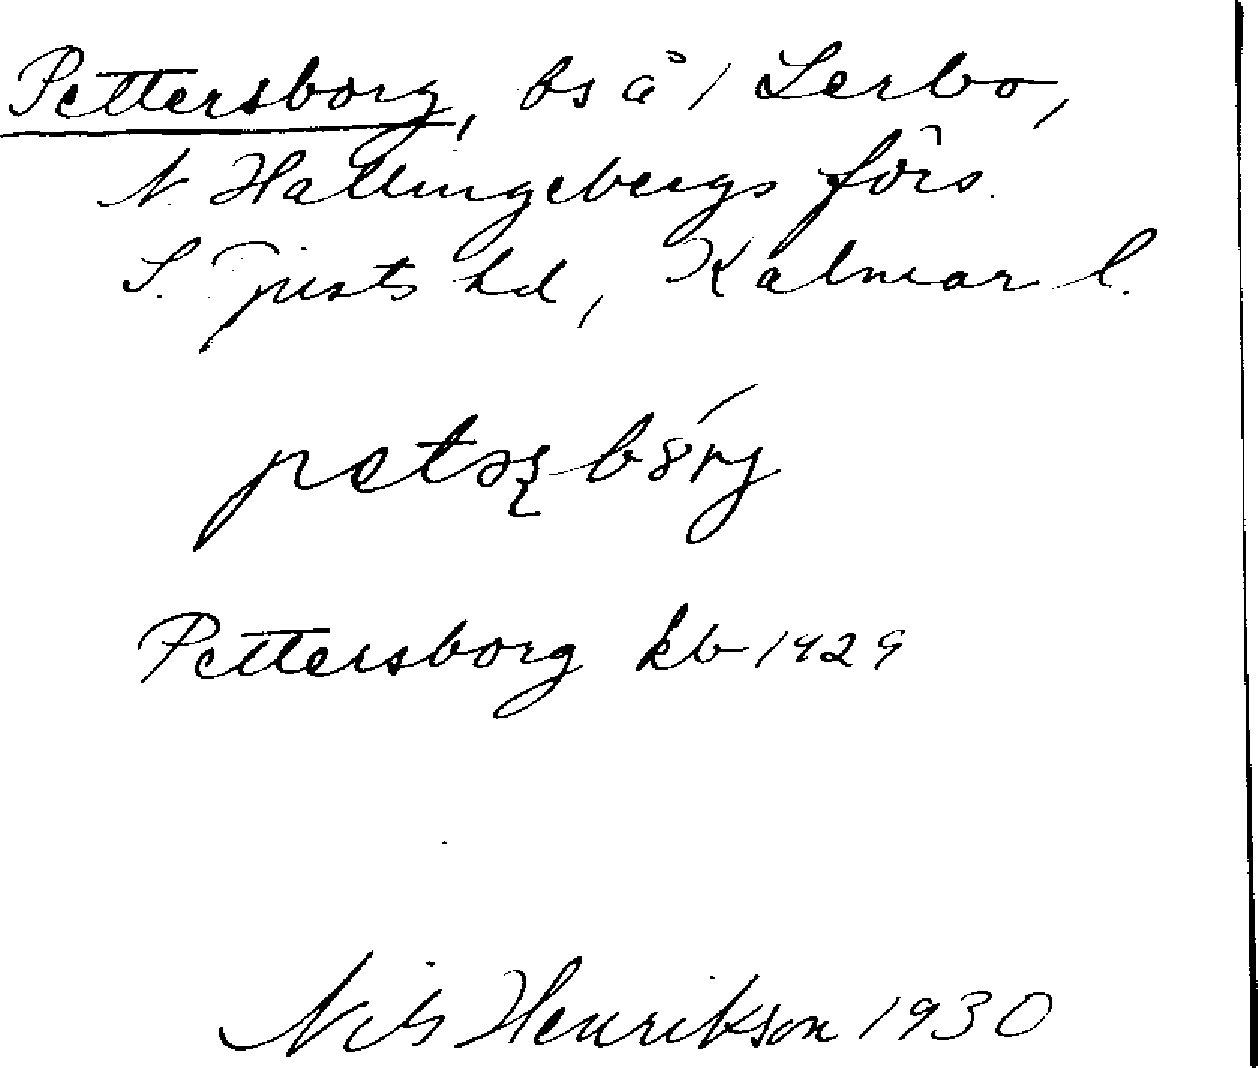 Pettersborg, bs å / Lerbo,
N. Hallingebergs förs.
S. Tjusts hd, Kalmar l.
Pettersborg kb 1929
Nils Henrikson 1930